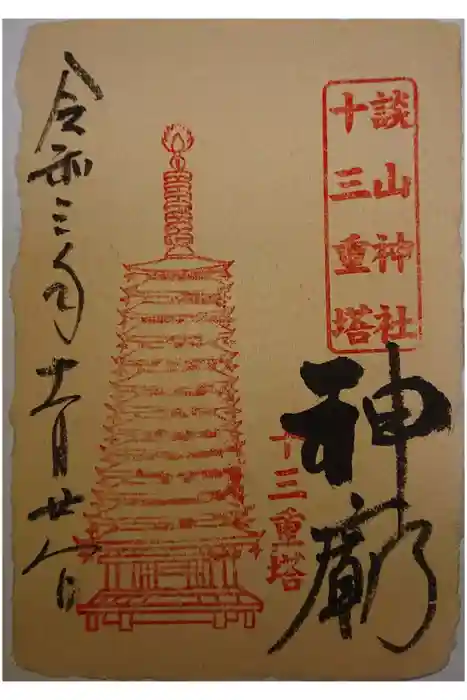 談山神社
十三重塔
神廟
十三重塔
令和三年十一月廿日